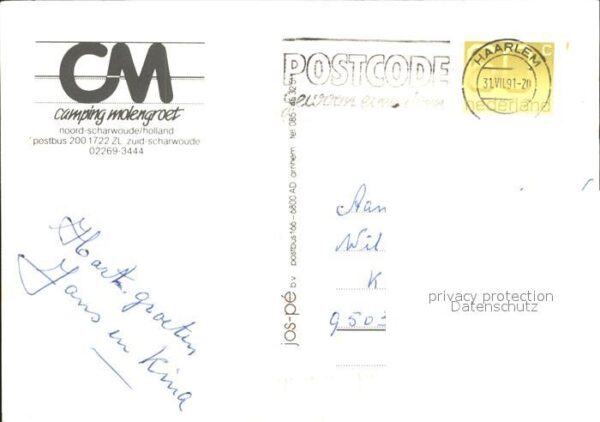 CM
camping molengroet
noord-scharwoude/holland
postbus 200 1722 ZL zuid-scharwoude
02269-3444
POSTCODE
gewoon even doen
HAARLEM
31.VII.91-20
C
nederland
jos-pé b.v. postbus 166 - 6800 AD arnhem tel. 085-
Aan
Wil
K
9503
Hart. groeten
Hans en Kina
privacy protection
Datenschutz